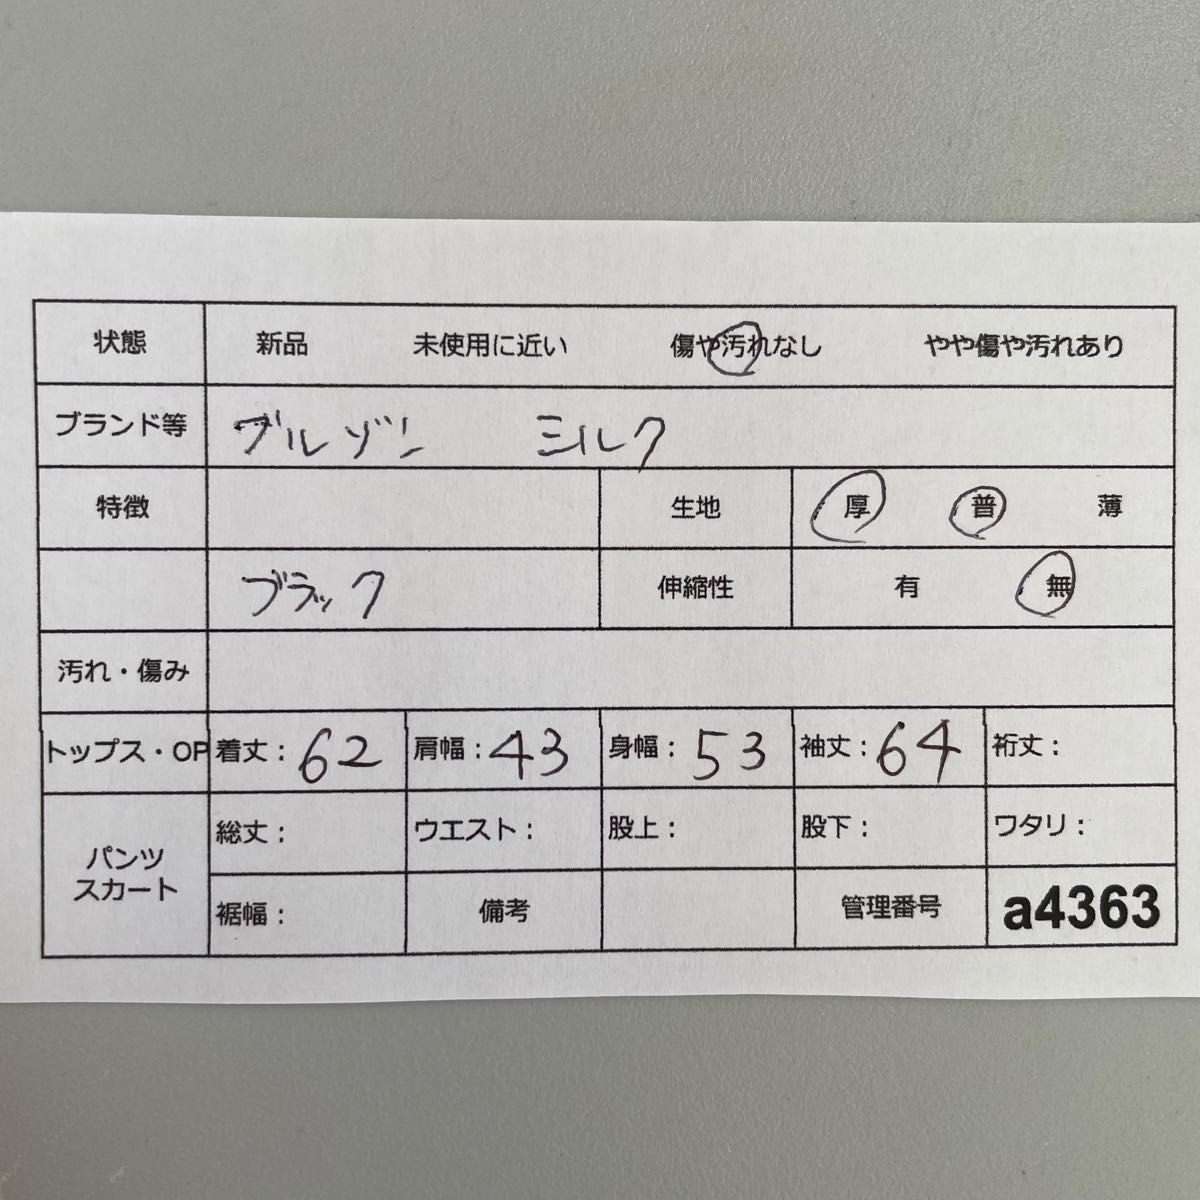 状態 新品 未使用に近い 傷や汚れなし やや傷や汚れあり
ブランド等 ブルゾン ミルク
特徴 生地 厚 普 薄
ブラック 伸縮性 有 無
汚れ・傷み
トップス・OP 着丈：62 肩幅：43 身幅：53 袖丈：64 裄丈：
パンツ
スカート
総丈： ウエスト： 股上： 股下： ワタリ：
裾幅： 備考 管理番号 a4363